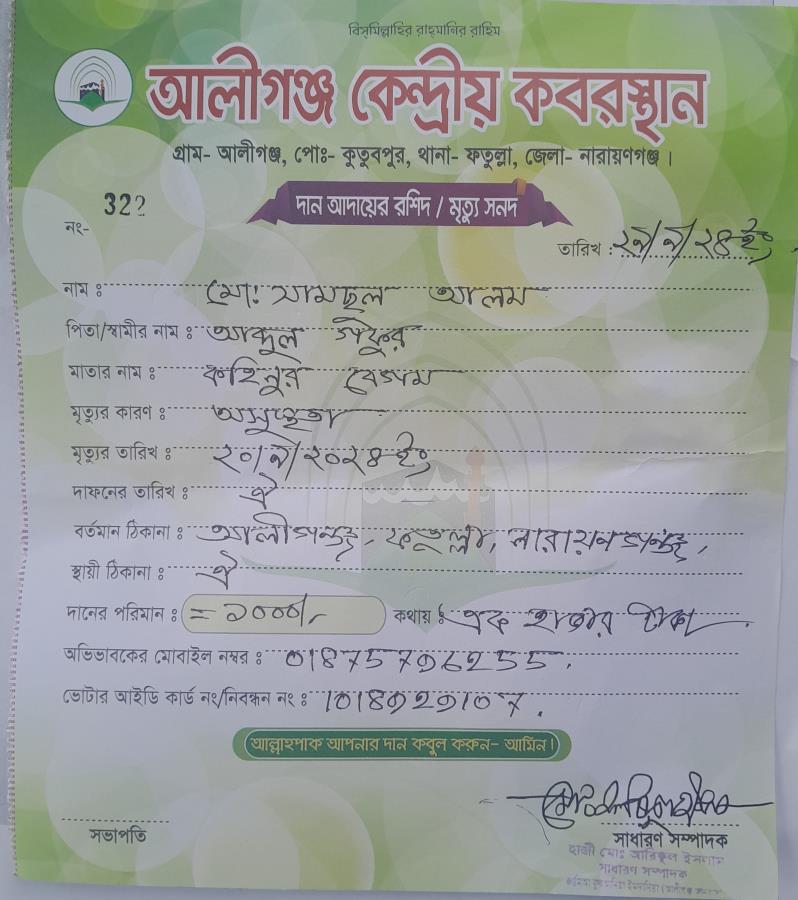 বিস্‌মিল্লাহির রাহ্‌মানির রাহিম
আলীগঞ্জ কেন্দ্রীয় কবরস্থান
গ্রাম- আলীগঞ্জ, পোঃ- কুতুবপুর, থানা- ফতুল্লা, জেলা- নারায়ণগঞ্জ।
দান আদায়ের রশিদ / মৃত্যু সনদ
নং- 322
তারিখ : ২৯/৯/২৪ইং
নাম ঃ মো: সামছুল আলম
পিতা/স্বামীর নাম ঃ আব্দুল গফুর
মাতার নাম ঃ কহিনুর বেগম
মৃত্যুর কারণ ঃ অসুস্থতা
মৃত্যুর তারিখ ঃ ২০/৯/২০২৪ইং
দাফনের তারিখ ঃ ঐ
বর্তমান ঠিকানা ঃ আলীগঞ্জ, ফতুল্লা, নারায়নগঞ্জ,
স্থায়ী ঠিকানা ঃ ঐ
দানের পরিমান ঃ = ১০০০/- কথায় ঃ এক হাজার টাকা
অভিভাবকের মোবাইল নম্বর ঃ
ভোটার আইডি কার্ড নং/নিবন্ধন নং ঃ
আল্লাহপাক আপনার দান কবুল করুন- আমিন।
সভাপতি
সাধারণ সম্পাদক
হাজী মোঃ আরিফুল ইসলাম
সাধারণ সম্পাদক